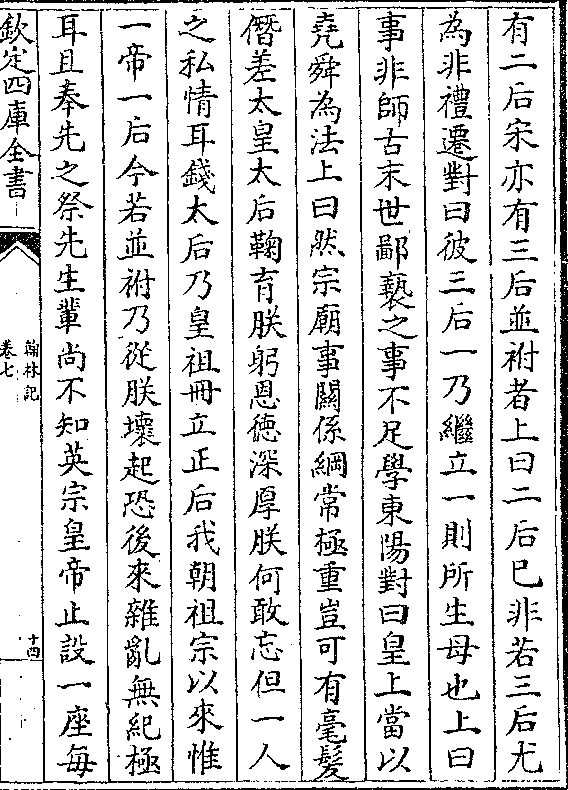 有二后宋亦有三后並祔者上曰二后已非若三后尤
為非禮遷對曰彼三后一乃繼立一則所生母也上曰
事非師古末世鄙褻之事不足學東陽對曰皇上當以
堯舜為法上曰然宗廟事關係綱常極重豈可有毫髮
僭差太皇太后鞠育朕躬恩徳深厚朕何敢忘但一人
之私情耳錢太后乃皇祖冊立正后我朝祖宗以來惟
一帝一后今若並祔乃從朕壞起恐後來雜亂無紀極
耳且奉先之祭先生輩尚不知英宗皇帝止設一座每
欽定四庫全書
翰林記
卷七
十四